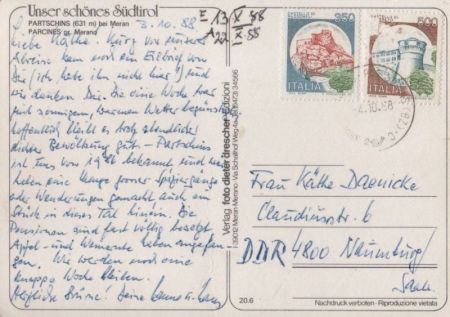 Unser schönes Südtirol
PARTSCHINS (631 m) bei Meran
PARCINES pr. Merano
3.10.88
E 13 X 88
A 22 X 88
Liebe Käthe. Kurz vor unserer
Abreise kam noch ein Eilbrief von
Dir (ich habe ihn nicht hier) und
wir danken Dir. Die eine Woche war
mit sonnigem, warmen Wetter begünstigt
hoffentlich bleibt es trotz abendlicher
dichter Bewölkung gut - Partschins
ist uns von 19 bekannt und wir
haben eine Menge grosser Spaziergänge
oder Wanderungen gemacht auch ein
Stück in dieses Tal hinein. Die
Pensionen sind fast völlig besetzt
Apfel- und Weinernte haben angefan-
gen. Wir werden noch eine
knappe Woche bleiben.
Herzliche Grüsse! Deine
Verlag foto dieter drescher edizioni
I-39012 Meran/Merano
950
ITALIA
500
ITALIA
10.88
Frau Käthe Daenicke
Claudiusstr. 6
DDR 4800 Naumburg/
Saale
20.6
Nachdruck verboten - Riproduzione vietata